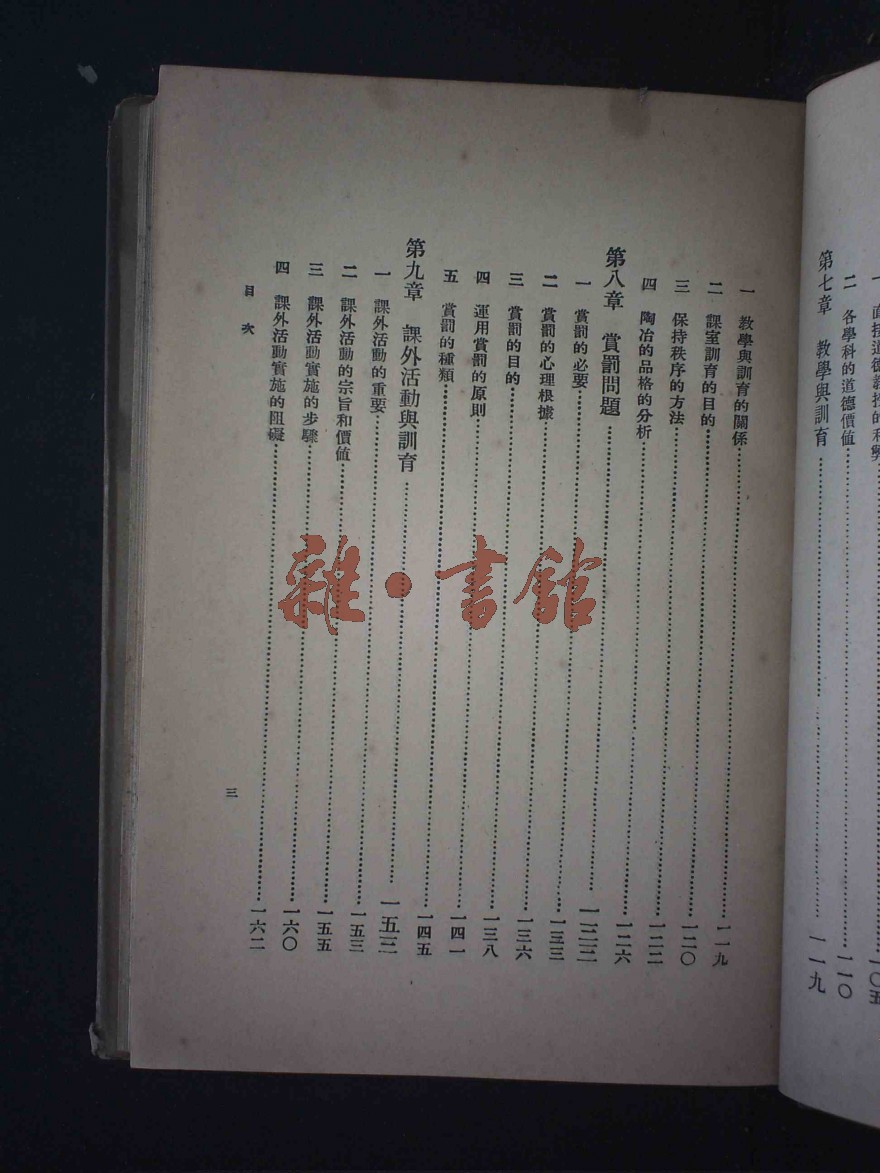 一 直接道德教授的利弊……一〇五
二 各學科的道德價値……一一〇
第七章 教學與訓育……一一九
一 教學與訓育的關係……一一九
二 課室訓育的目的……一二〇
三 保持秩序的方法……一二二
四 陶冶的品格的分析……一二六
第八章 賞罰問題……一三三
一 賞罰的必要……一三三
二 賞罰的心理根據……一三六
三 賞罰的目的……一三八
四 運用賞罰的原則……一四一
五 賞罰的種類……一四五
第九章 課外活動與訓育……一五三
一 課外活動的重要……一五三
二 課外活動的宗旨和價値……一五五
三 課外活動實施的步驟……一六〇
四 課外活動實施的阻礙……一六二
目次
三
雜·書館